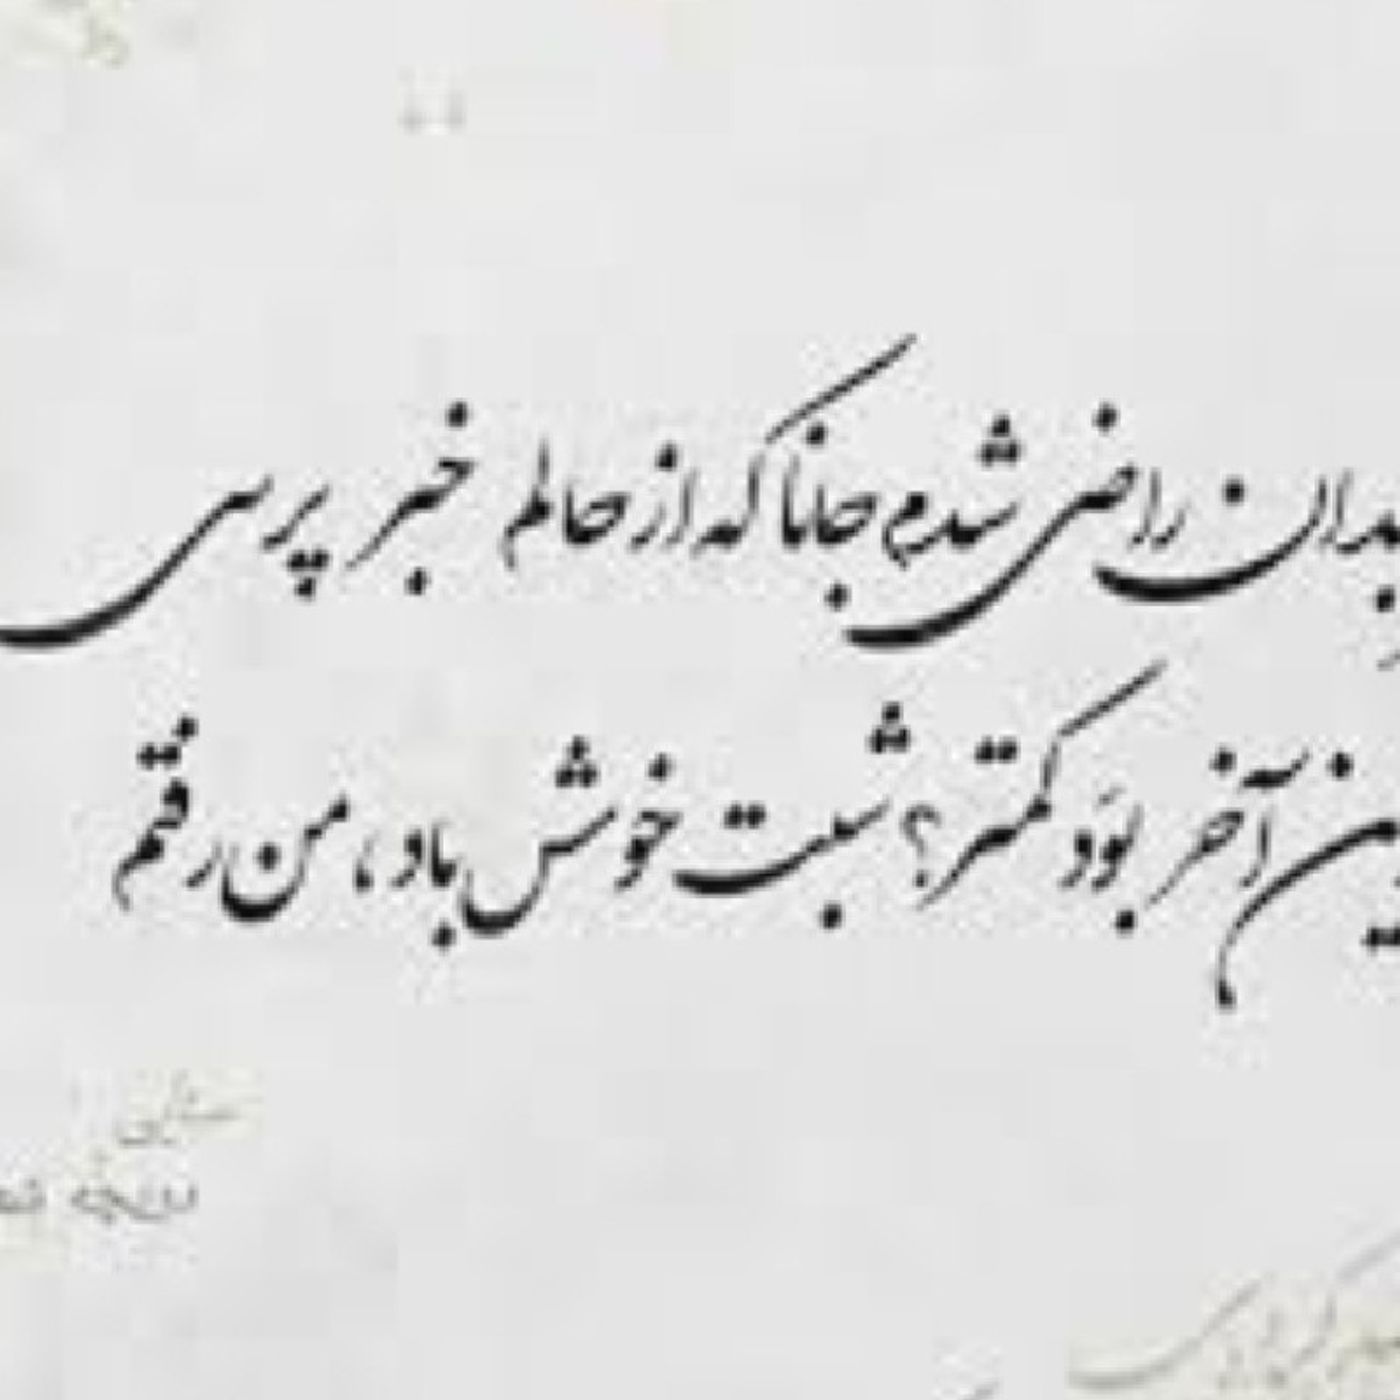 بدان راضی شدم جانا که از حالم خبر پرسی
آخر بوَد کمتر؟ شبت خوش باد، من رفتم